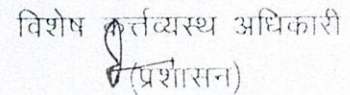 विशेष कर्त्तव्यस्थ अधिकारी
(प्रशासन)